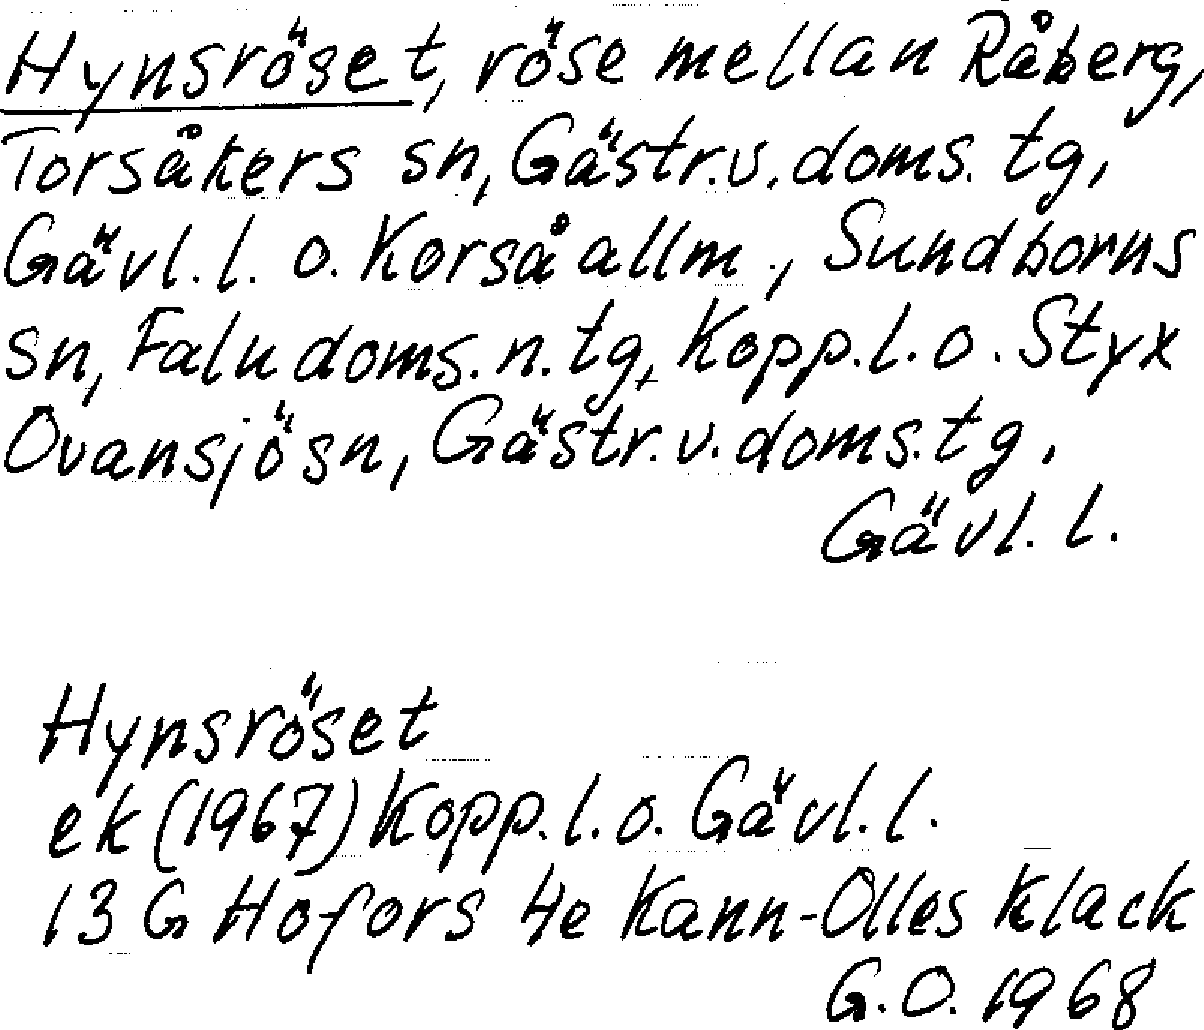 Hynsröset, röse mellan Råberg,
Torsåkers sn, Gästr.v.doms.tg,
Gävl.l. o. Korså allm., Sundborns
sn, Falu doms.n.tg, Kopp.l. o. Styx
Ovansjö sn, Gästr.v.doms.tg,
Gävl.l.
Hynsröset
ek (1967) Kopp.l. o. Gävl.l.
13 G Hofors 4e Kann-Olles klack
G.O. 1968